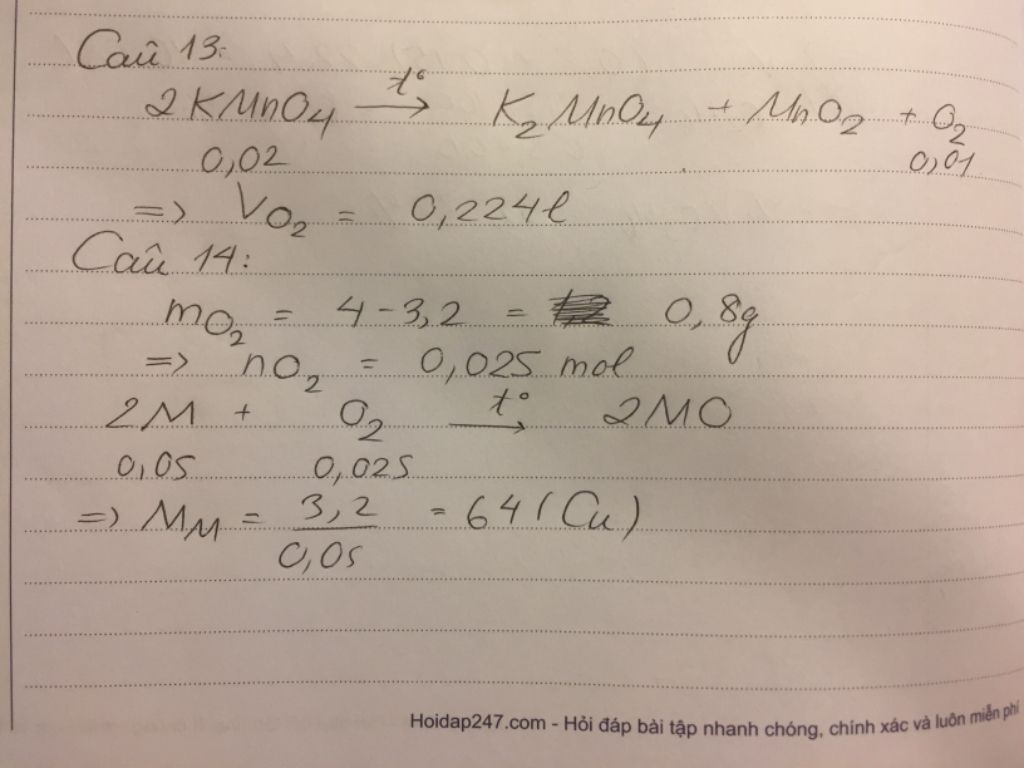 Câu 13:
2KMnO₄ →t° K₂MnO₄ + MnO₂ + O₂
0,02 0,01
=> V O₂ = 0,224l
Câu 14:
mO₂ = 4 - 3,2 = 0,8g
=> nO₂ = 0,025 mol
2M + O₂ →t° 2MO
0,05 0,025
=> M_M = 3,2 / 0,05 = 64 (Cu)
Hoidap247.com - Hỏi đáp bài tập nhanh chóng, chính xác và luôn miễn phí